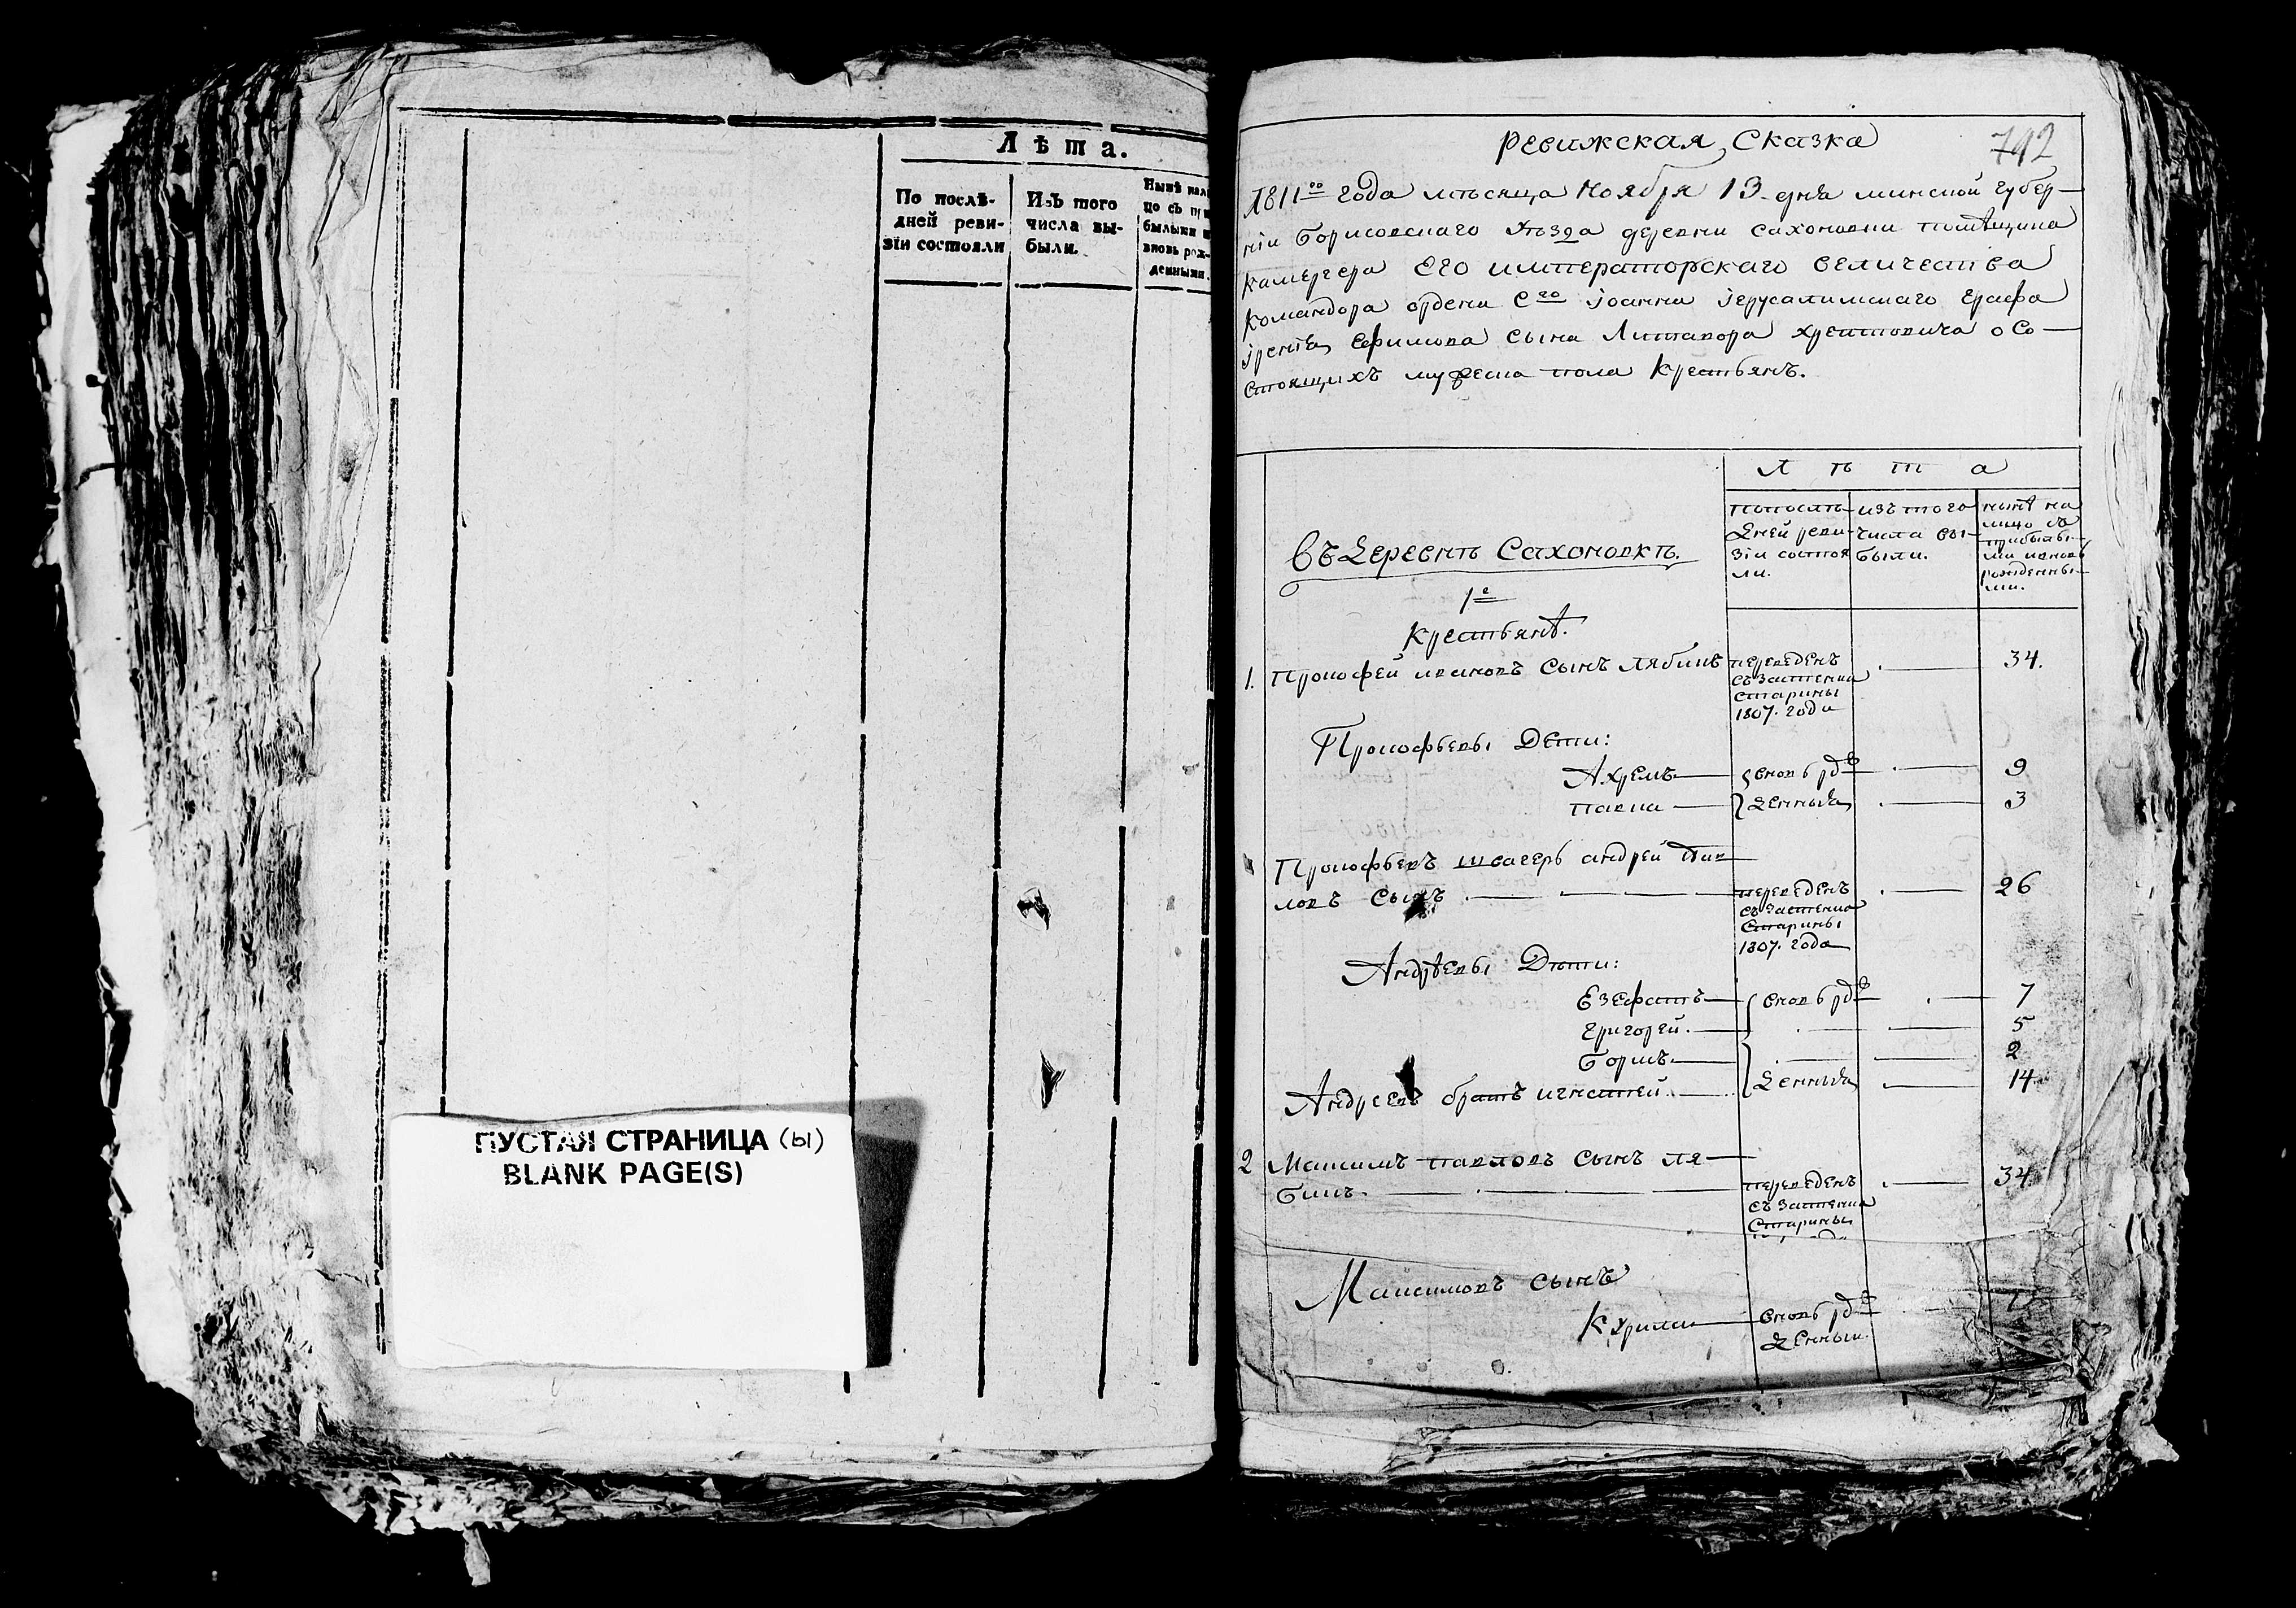 Лѣта.
По послѣ-
дней реви-
зіи состояли
Изъ того
числа вы-
были.
Нынѣ на
цо съ п
былыми
вновь рож-
денными.
ПУСТАЯ СТРАНИЦА (ы)
BLANK PAGE(S)
792
Ревижская Сказка
1811го года мѣсяца Ноября 13 дня минской губер-
ніи Борисовскаго уѣзда деревни Сахоновки помѣщика
Камергера Его императорскаго величества
Командора ордена Сго Іоанна Іерусалимскаго графа
Іренія Ефимова сына Литавора Хрептовича о Со-
стоящихъ мужеска пола Крестьянъ.
Лѣта
Въ Деревнѣ Сахоновкѣ.
попослѣ-
дней реви-
зіи состоя
ли.
изъ того
числа вы-
были.
нынѣ на
лицо съ
прибылы-
ми вновь
рожденны-
ми.
1е
Крестьянѣ.
1. Прокофей ивановъ Сынъ Лябикъ переведенъ 34.
съ Застенка
старины
1807. года
Прокофьевы Дети:
Ахремъ вновь рож 9
павла денныя 3
Прокофьевъ швагеръ андрей Пав
ловъ Сынъ переведенъ 26
съ застенка
Старины
1807. года
Андрѣевы Дѣти:
Езефатъ вновь рож 7
Григорей. 5
Борисъ 2
Андреевъ братъ игнатей. денныя 14.
2 Максимъ павловъ сынъ ля-
бикъ. переведенъ 34.
съ Застенка
Старины
Максимовъ сынъ
вновь рож
денный.